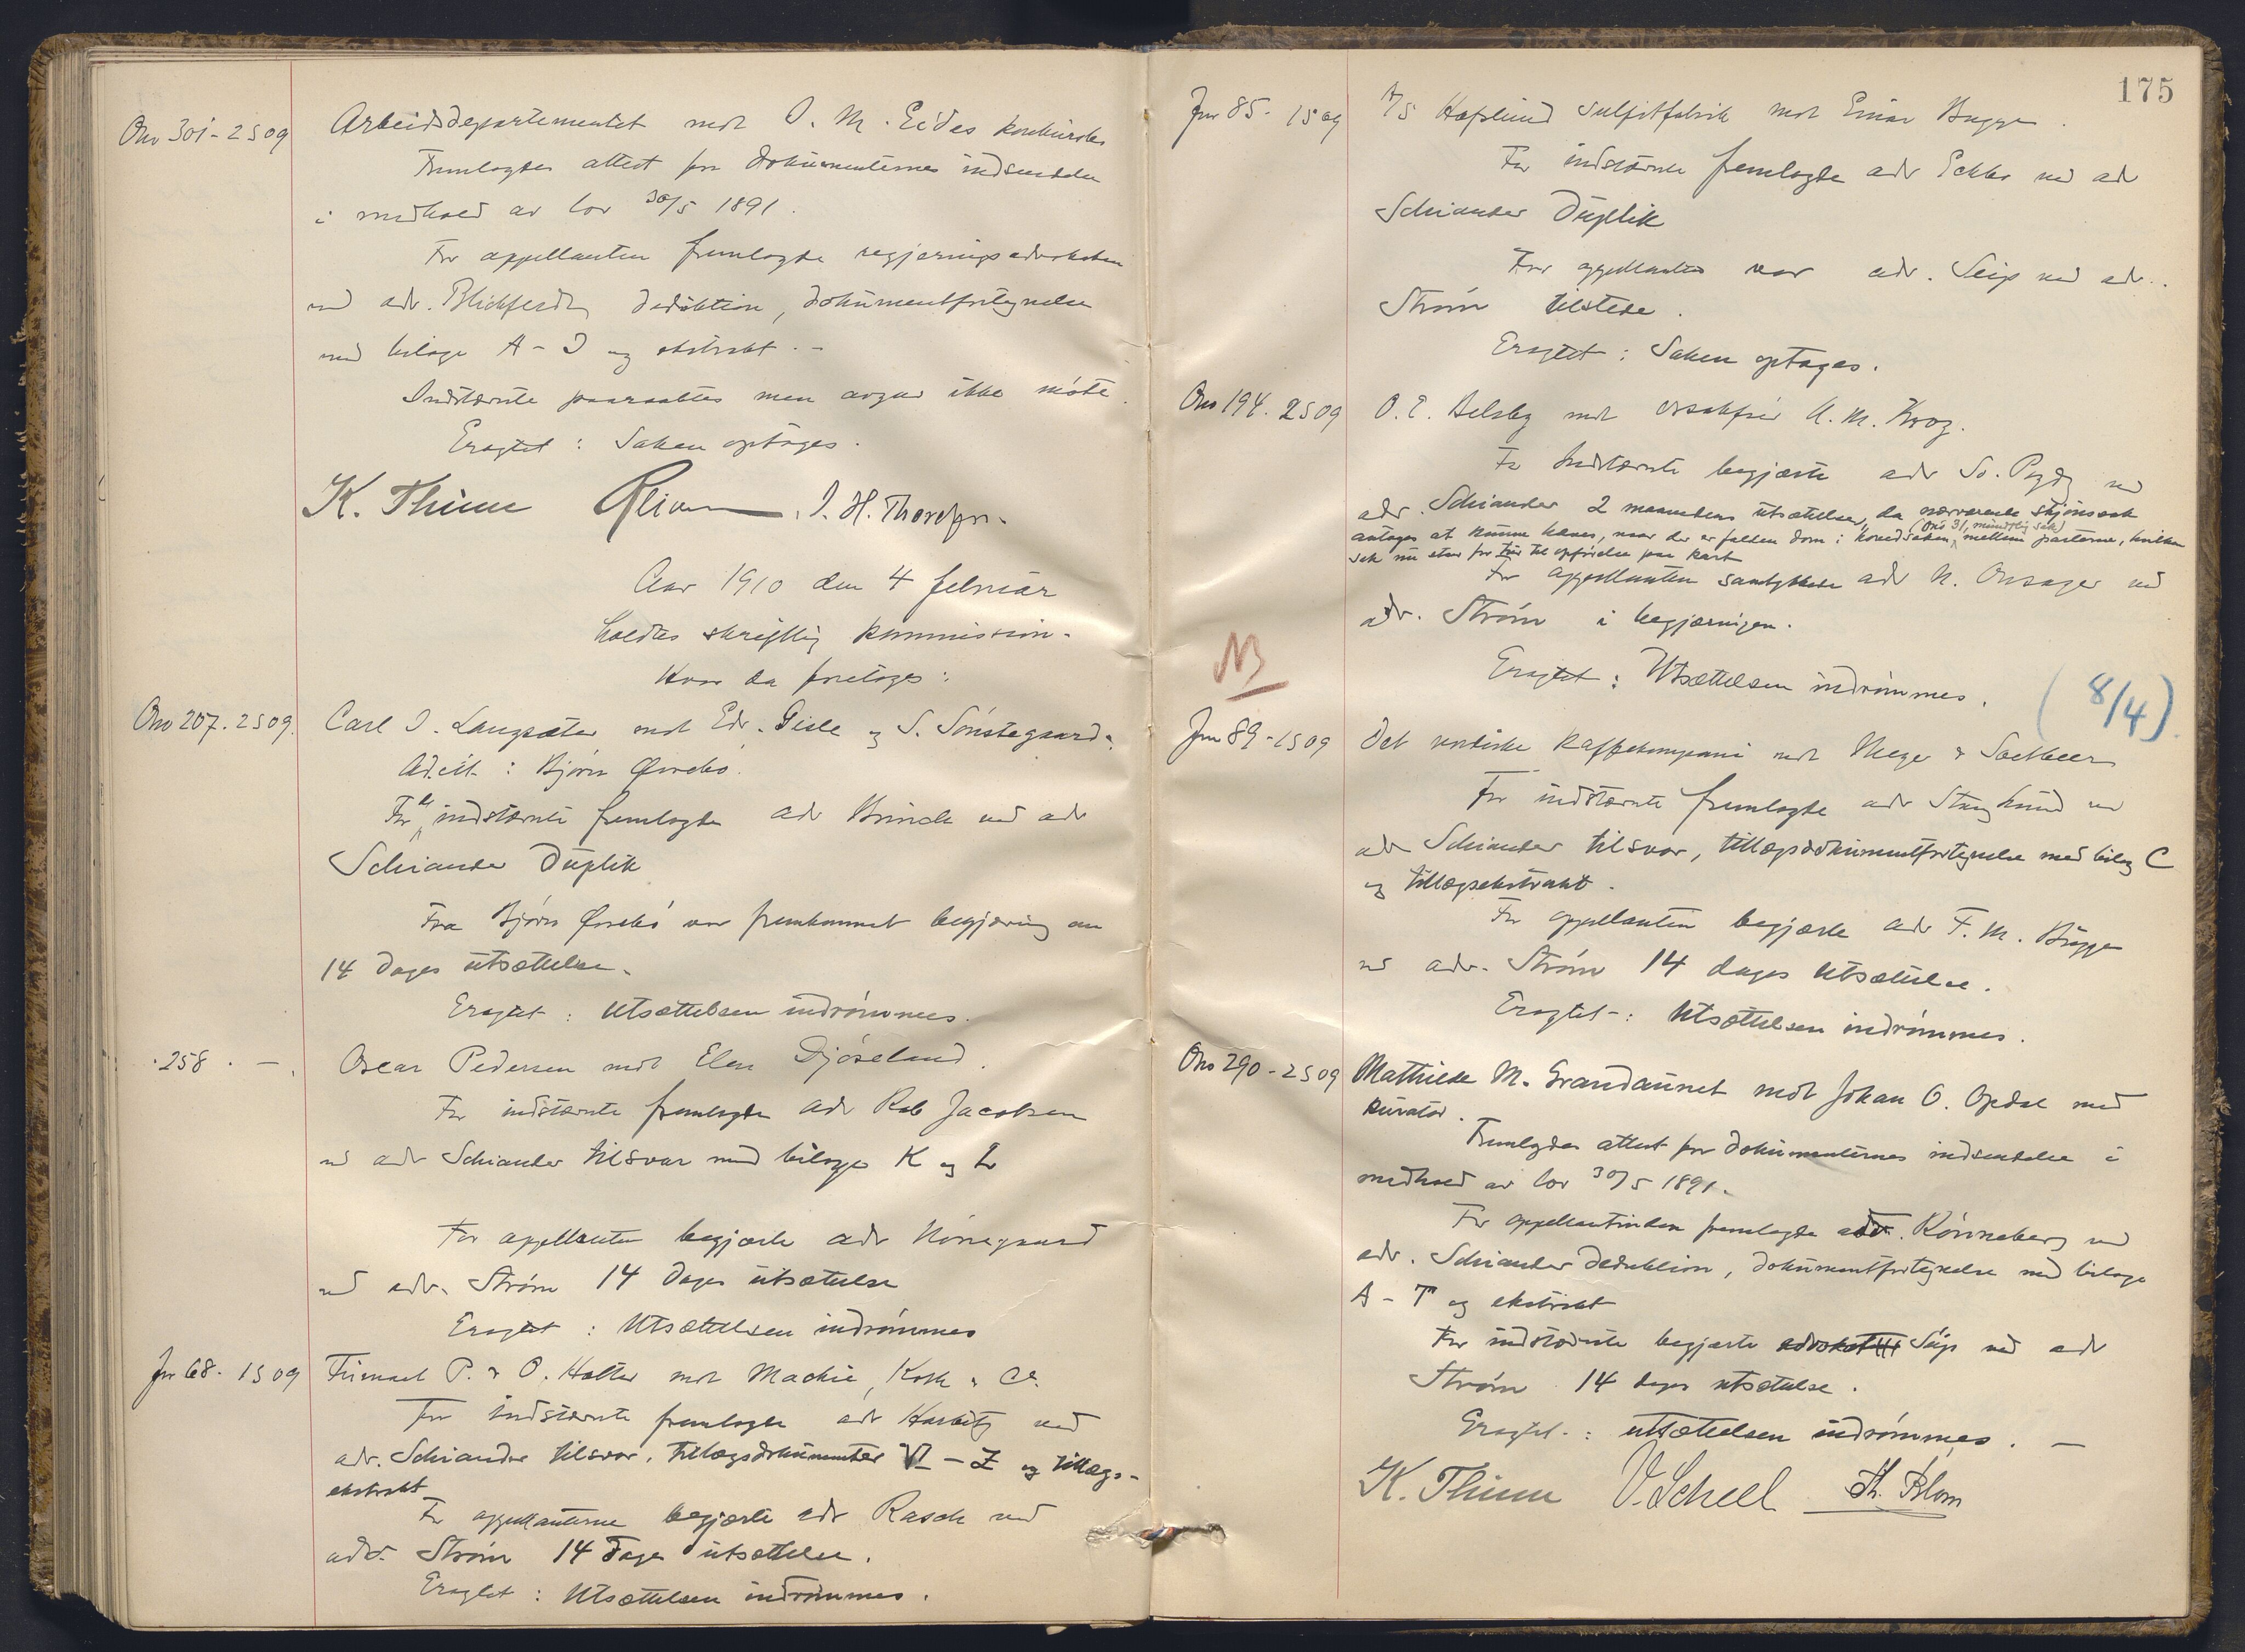 Ono 301 - 2 S 09
Arbeidsdepartementet mot O. M. Eides konkursbo
Fremlagdes attest for dokumenternes indsendelse
i medhold av lov 30/5 1891.
For appellanten fremlagde regjeringsadvokaten
ved adv. Blichfeldt deduktion, dokumentfortegnelse
med bilage A - I og ekstrakt. -
Indstevnte paaraabtes men avgav ikke møte.
Eragtet : Saken optages.
K. Thime J. H. Thoresen.
Aar 1910 den 4 februar
holdtes skriftlig kommission.
Hvor da foretoges :
Ono 207. 2 S 09.
Carl J. Langsæter mot Edv. Gisle og S. Sønstegaard.
Adcit. : Bjørn Ørvebø.
For de indstevnte fremlagde adv Brinch ved adv
Schiander Duplik
Fra Bjørn Ørvebø var fremkommet begjæring om
14 dages utsættelse.
Eragtet : Utsættelsen indrømmes.
- 258. -
Oscar Pedersen mot Elen Djøseland.
For indstevnte fremlagde adv Rob Jacobsen
ved adv Schiander tilsvar med bilage K og L
For appellanten begjærte adv Nørregaard
ved adv. Strøm 14 dages utsættelse
Eragtet : Utsættelsen indrømmes
Jno 68. 1 S 09
Firmaet P. & O. Holter mot Mackie, Koth & Co.
For Indstevnte fremlagde adv Harbitz ved
adv. Schiander tilsvar, tillægsdokumenter V - Z og tillægs-
ekstrakt
For appellanterne begjærte adv Rasch ved
adv. Strøm 14 dages utsættelse.
Eragtet : Utsættelsen indrømmes.
175
Jno 85. 1 S 09
A/S Hafslund Sulfitfabrik mot Einar Bugge.
For indstevnte fremlagde adv Eckbo ved adv
Schiander Duplik
For appellanten var adv. Seip ved adv.
Strøm tilstede.
Eragtet : Saken optages.
Ono 194. 2 S 09
O. E. Aelsby mot ersakfrer A. M. Krog.
For Indstevnte begjærte adv So. ved
adv. Schiander 2 maaneders utsættelse, da nærværende skjønssak
(Ono 31, mundtlig sak)
antages at kunne hæves, naar der er falden dom i hovedsaken mellem parterne, hvilken
sak nu staar for tur til opførelse paa kart
For appellanten samtykkede adv N. Onsager ved
adv. Strøm i begjæringen.
NB
Eragtet : Utsættelsen indrømmes.
(8/4)
Jno 89 - 1 S 09
Det nordiske Kaffekompani mot Mege & Soetbeer
For indstevnte fremlagde adv Stang Lund ved
adv Schiander tilsvar, tillægsdokumentfortegnelse med bilag C
og tillægsekstrakt.
For appellanten begjærte adv F. M. Bugge
ved adv. Strøm 14 dages utsættelse.
Eragtet - : Utsættelsen indrømmes.
Ono 290 - 2 S 09
Mathilde M. Grandaunet mot Johan O. Opdal med
kurator.
Fremlagdes attest for dokumenternes indsendelse i
medhold av lov 30/5 1891.
For appellantinden fremlagde adv. Rønneberg ved
adv. Schiander deduktion, dokumentfortegnelse med bilage
A - T og ekstrakt
For indstevnte begjærte advokat Seip ved adv
Strøm 14 dages utsættelse.
Eragtet - : utsættelsen indrømmes. -
K. Thime V. Scheel Kr. Blom